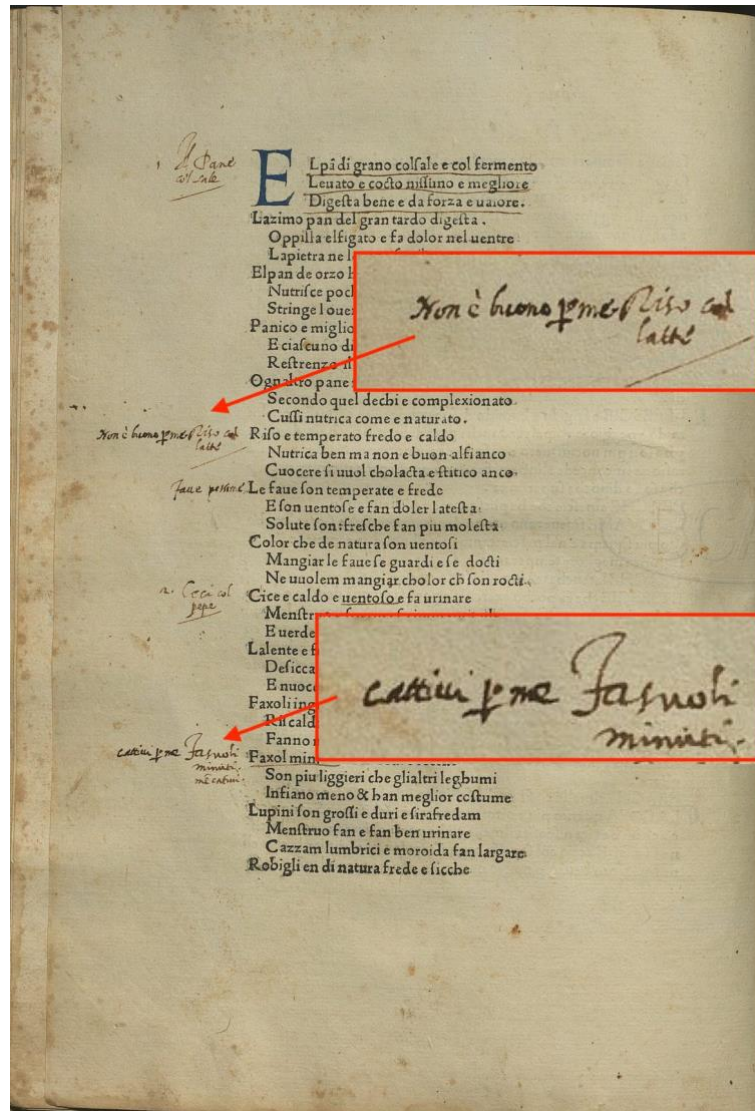 Il Pane
col sale
ELpã di grano colſale e col fermento
Leuato e cocto niſſuno e megliore
Digeſta bene e da forza e ualore.
Lazimo pan del gran tardo digeſta .
Oppilla elfigato e fa dolor nel uentre
Lapietra ne
Elpan de orzo
Nutriſce poc
Stringe l oue
Panico e miglio
E ciaſcuno di
Reſtrenze il
Ognaltro pane
Secondo quel dechi e complexionato.
Cuſſi nutrica come e naturato.
Non è buono ꝑ me Riso col
latte
Non è buono ꝑ me Riso col
latte
Riſo e temperato fredo e caldo
Nutrica ben ma non e buon alfianco
Cuocere ſi uuol cholacta e ſtitico anco
Faue
Le faue ſon temperate e frede
E ſon uentoſe e fan doler lateſta
Solute ſon: freſche fan piu moleſta
Color che de natura ſon uentoſi
Mangiar le faue ſe guardi e ſe docti
Ne uuolem mangiar cholor ch̄ ſon rocti
Ceci col
pepe
Cice e caldo e uentoſo e fa urinare
Menſtr
E uerde
Lalente e f
Deſicca
E nuoc
Faxoli ing
Riſcald
Fanno
cattiui ꝑ me Fasuoli
minuti
cattiui ꝑ me Fasuoli
minuti
Faxol min
Son piu liggieri che glialtri leghumi
Infiano meno & han meglior coſtume
Lupini ſon groſſi e duri e ſirafredam
Menſtruo fan e fan ben urinare
Cazzam lumbrici e moroida fan largare
Robigli en di natura frede e ſicche